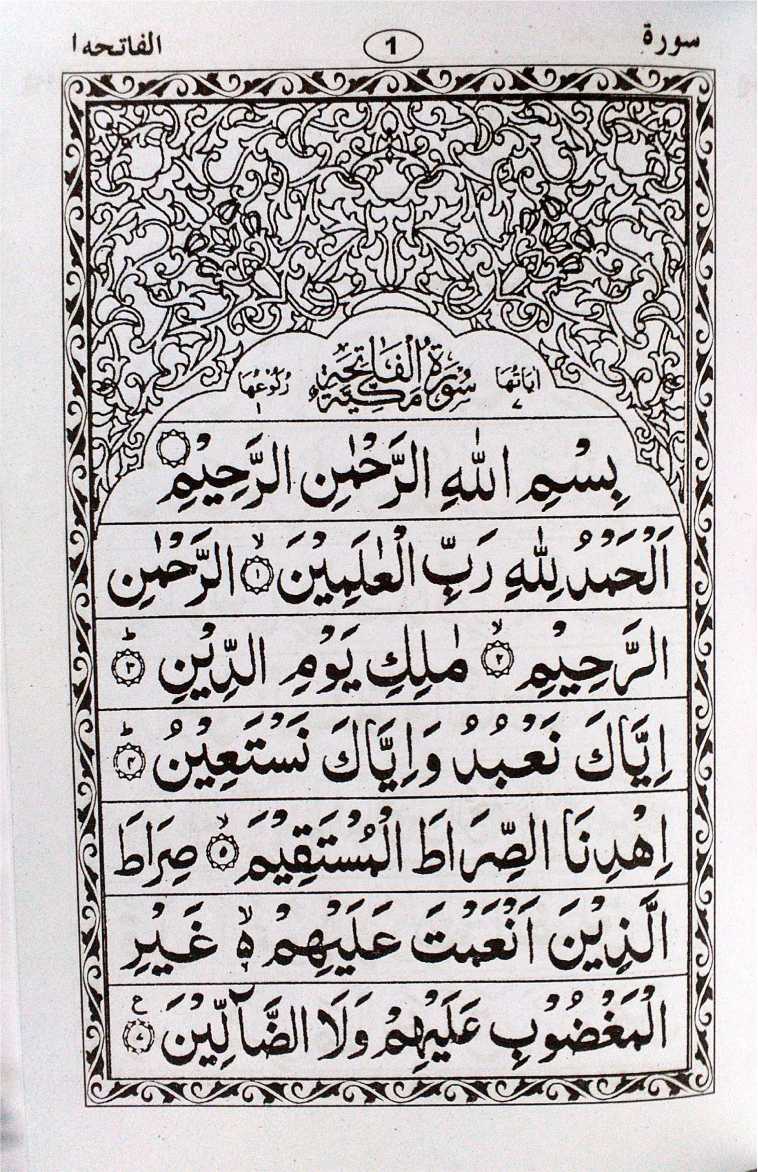 سورة 1 الفاتحه ١
اٰيَاتُهَا ٧ سُوْرَةُ الْفَاتِحَةِ مَكِّيَّةٌ رُكُوْعُهَا ١
بِسْمِ اللّٰهِ الرَّحْمٰنِ الرَّحِيْمِ
اَلْحَمْدُ لِلّٰهِ رَبِّ الْعٰلَمِيْنَ ۙ﴿١﴾ الرَّحْمٰنِ
الرَّحِيْمِ ۙ﴿٢﴾ مٰلِكِ يَوْمِ الدِّيْنِ ؕ﴿٣﴾
اِيَّاكَ نَعْبُدُ وَاِيَّاكَ نَسْتَعِيْنُ ؕ﴿٤﴾
اِهْدِنَا الصِّرَاطَ الْمُسْتَقِيْمَ ۙ﴿٥﴾ صِرَاطَ
الَّذِيْنَ اَنْعَمْتَ عَلَيْهِمْ ۙ۬ غَيْرِ
الْمَغْضُوْبِ عَلَيْهِمْ وَلَا الضَّآلِّيْنَ ع﴿٧﴾